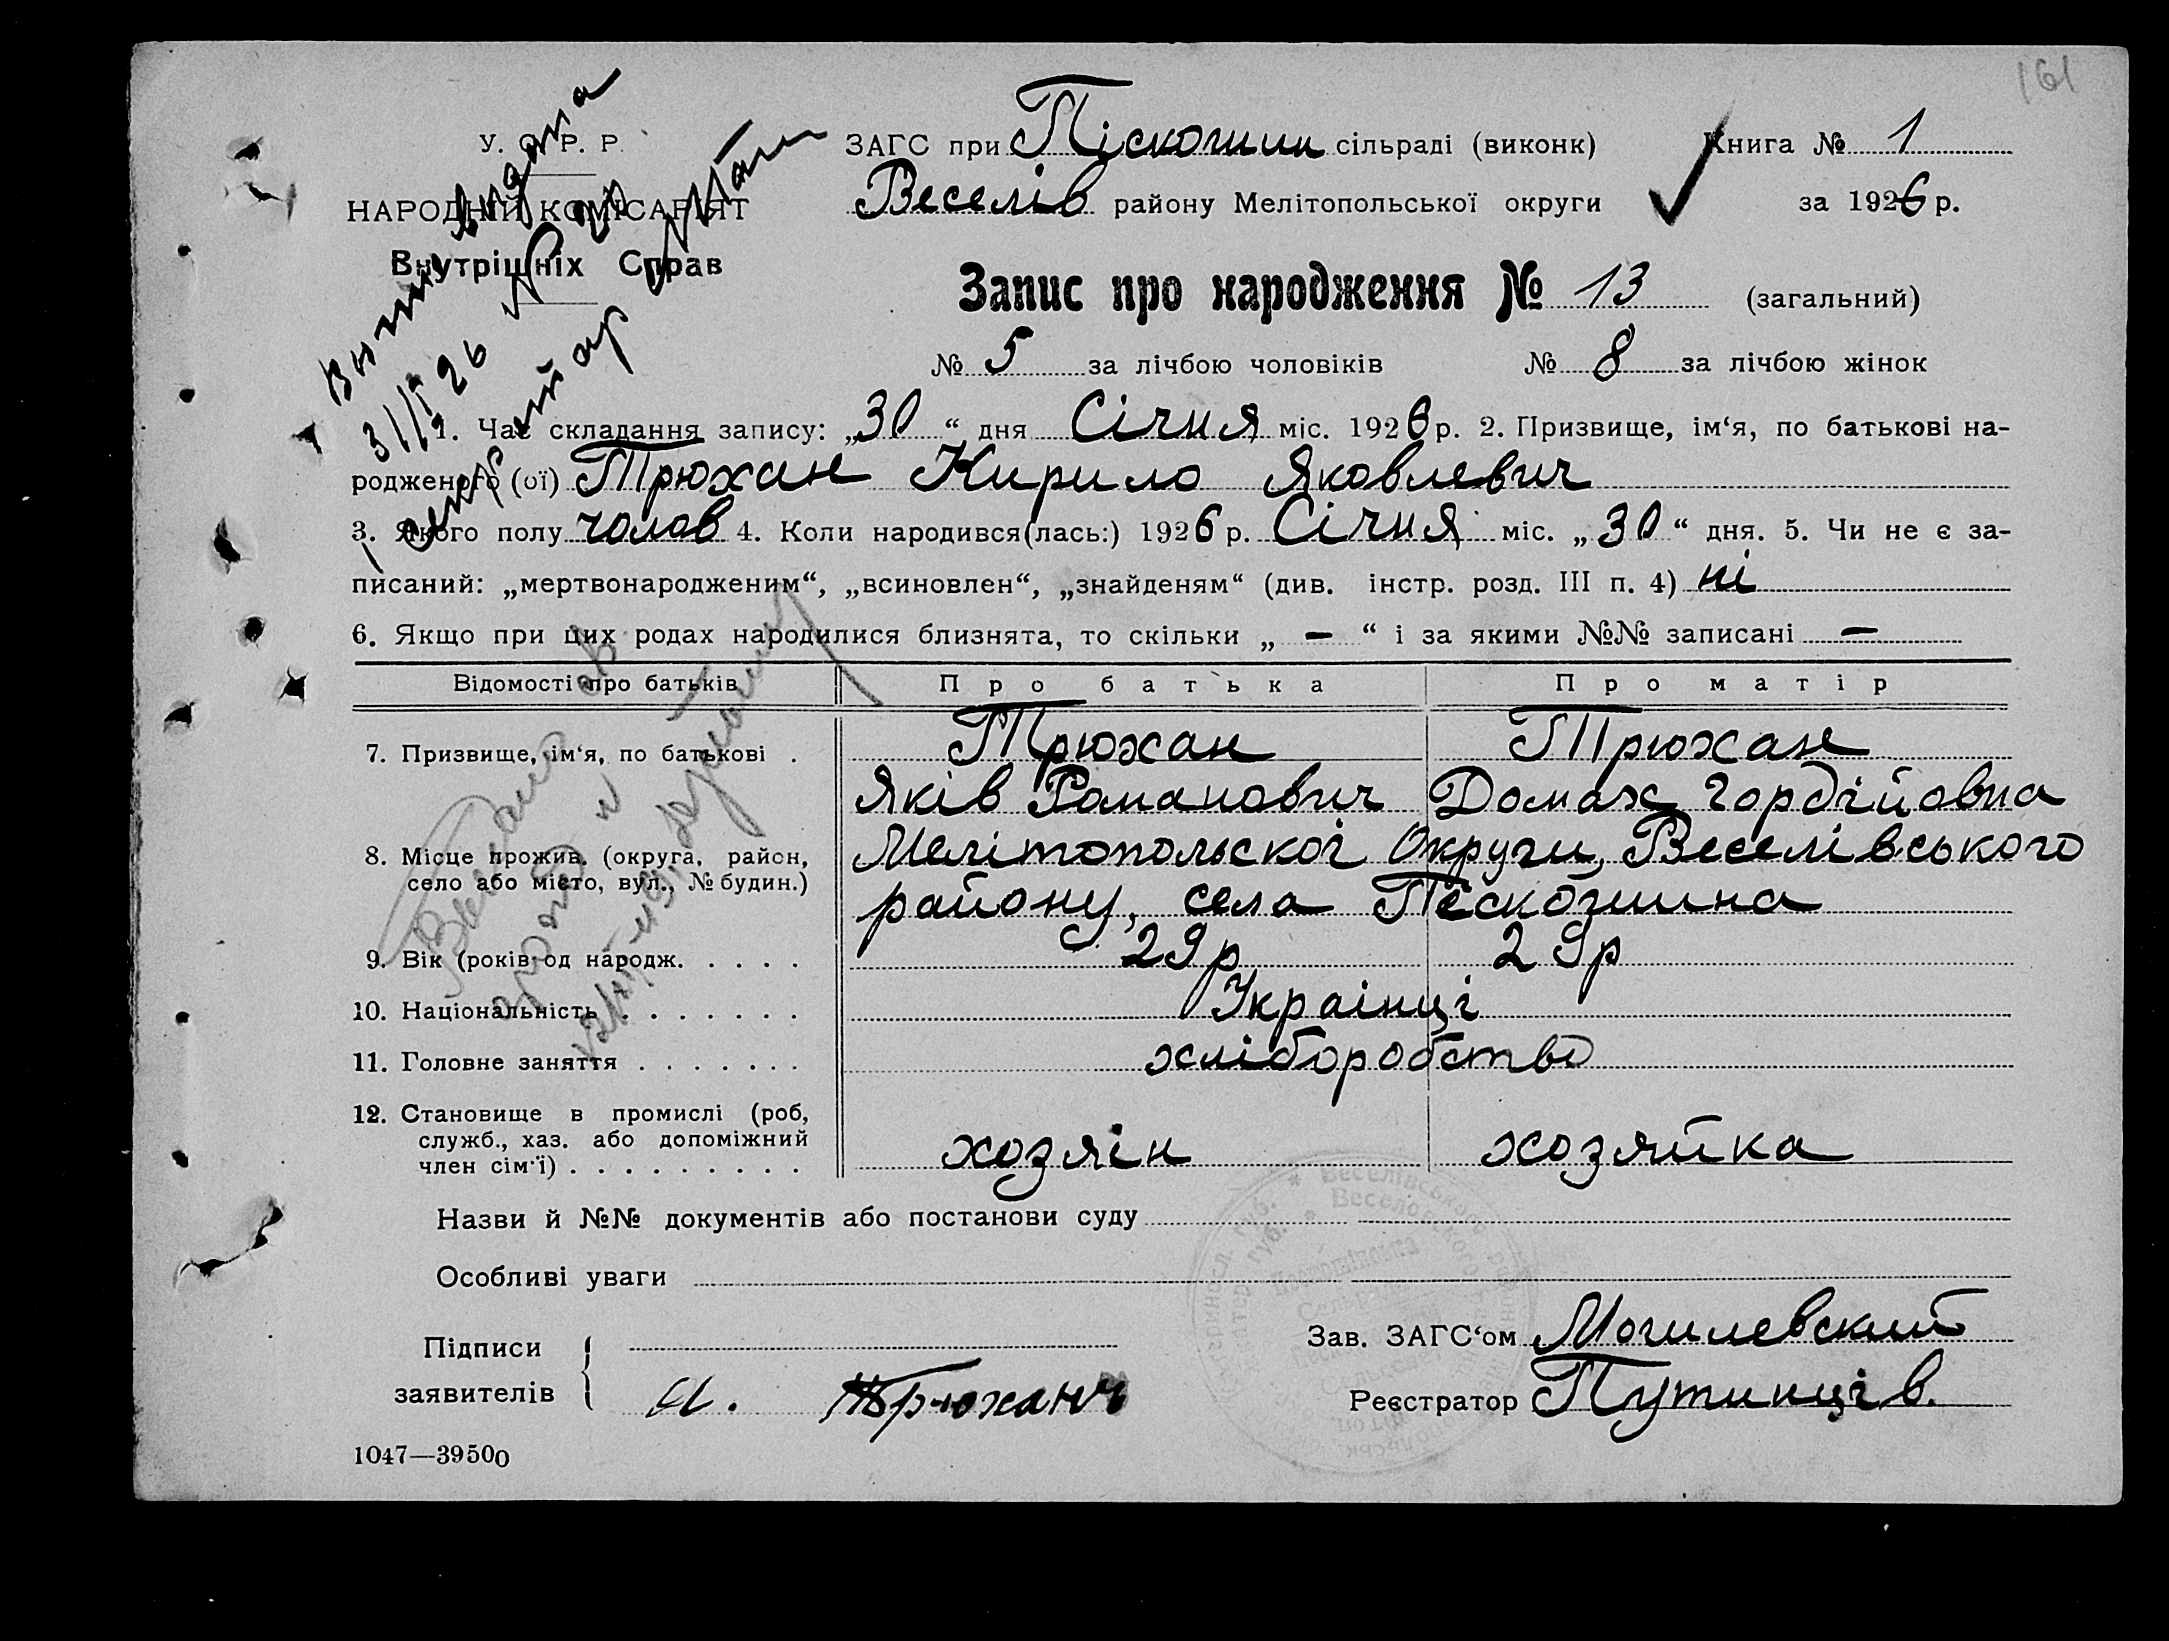 161
У. С. Р. Р.
НАРОДНІЙ КОМІСАРІЯТ
Внутрішніх Справ
ЗАГС при Піскошин сільраді (виконк)
Книга № 1
Веселів району Мелітопольської округи
за 1926 р.
Запис про народження № 13 (загальний)
№ 5 за лічбою чоловіків № 8 за лічбою жінок
1. Час складання запису: „30“ дня Січня міс. 1926 р. 2. Призвище, ім‘я, по батькові на-
родженого (ої) Трюхан Кирило Яковлевич
3. Якого полу чолов 4. Коли народився(лась:) 1926 р. Січня міс. „30“ дня. 5. Чи не є за-
писаний: „мертвонародженим“, „всиновлен“, „знайденям“ (див. інстр. розд. III п. 4) ні
6. Якщо при цих родах народилися близнята, то скільки „ — “ і за якими №№ записані —
Відомості про батьків Про батька Про матір
7. Призвище, ім‘я, по батькові . Трюхан Трюхан
Яків Романович Домах Гордійовна
8. Місце прожив. (округа, район, Мелітопольскої Округи, Веселівського
село або місто, вул., № будин.) району, села Піскошина
9. Вік (років од народж. . . . . 29р 29р
10. Національність . . . . . . . Украінці
11. Головне заняття . . . . . . . хліборобство
12. Становище в промислі (роб,
служб., хаз. або допоміжний
член сім‘ї) . . . . . . . . . хозяін хозяйка
Назви й №№ документів або постанови суду
Особливі уваги
Підписи
заявителів
Трюхан
Зав. ЗАГС‘ом Могилевский
Реєстратор Путинців.
1047—39500